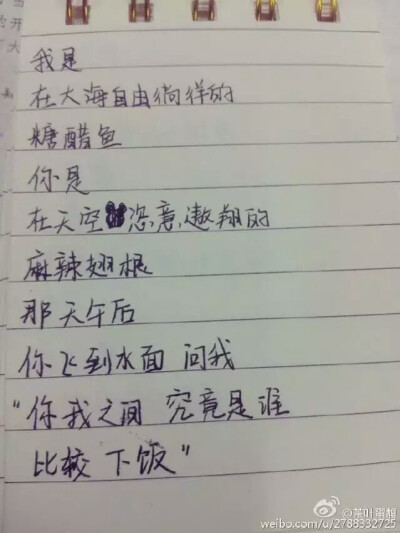 我是
在大海自由徜徉的
糖醋鱼
你是
在天空恣意遨翔的
麻辣翅根
那天午后
你飞到水面 问我
"你我之间 究竟是谁
比较 下饭"
@茶叶蛋超
weibo.com/u/2788332725